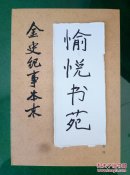 金史纪事本末
愉悦书苑